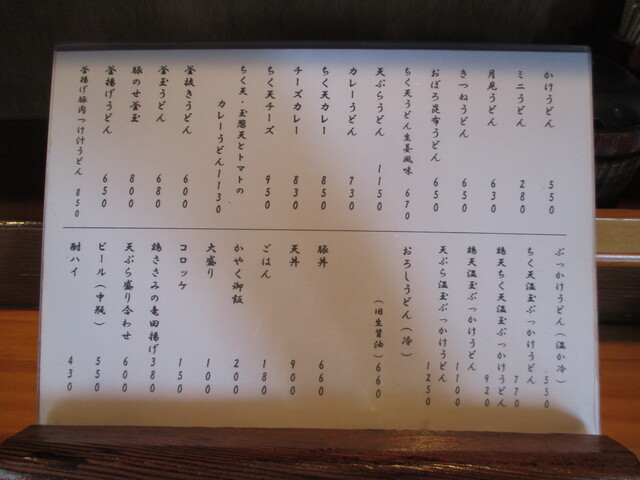 かけうどん 550
ミニうどん 280
月見うどん 630
きつねうどん 650
おぼろ昆布うどん 650
ちく天うどん生姜風味 670
天ぷらうどん 1150
カレーうどん 730
ちく天カレー 850
チーズカレー 830
ちく天チーズ 950
ちく天・玉葱天とトマトの
カレーうどん1130
釜抜きうどん 600
釜玉うどん 680
豚のせ釜玉 800
釜揚げうどん 650
釜揚げ豚肉つけ汁うどん 850
ぶっかけうどん(温か冷) 550
ちく天温玉ぶっかけうどん 770
鶏天ちく天温玉ぶっかけうどん 920
鶏天温玉ぶっかけうどん 1100
天ぷら温玉ぶっかけうどん 1250
おろしうどん(冷)
(旧生醤油)660
豚丼 660
天丼 900
ごはん 180
かやく御飯 200
大盛り 100
コロッケ 150
鶏ささみの竜田揚げ380
天ぷら盛り合わせ 600
ビール(中瓶) 550
酎ハイ 430